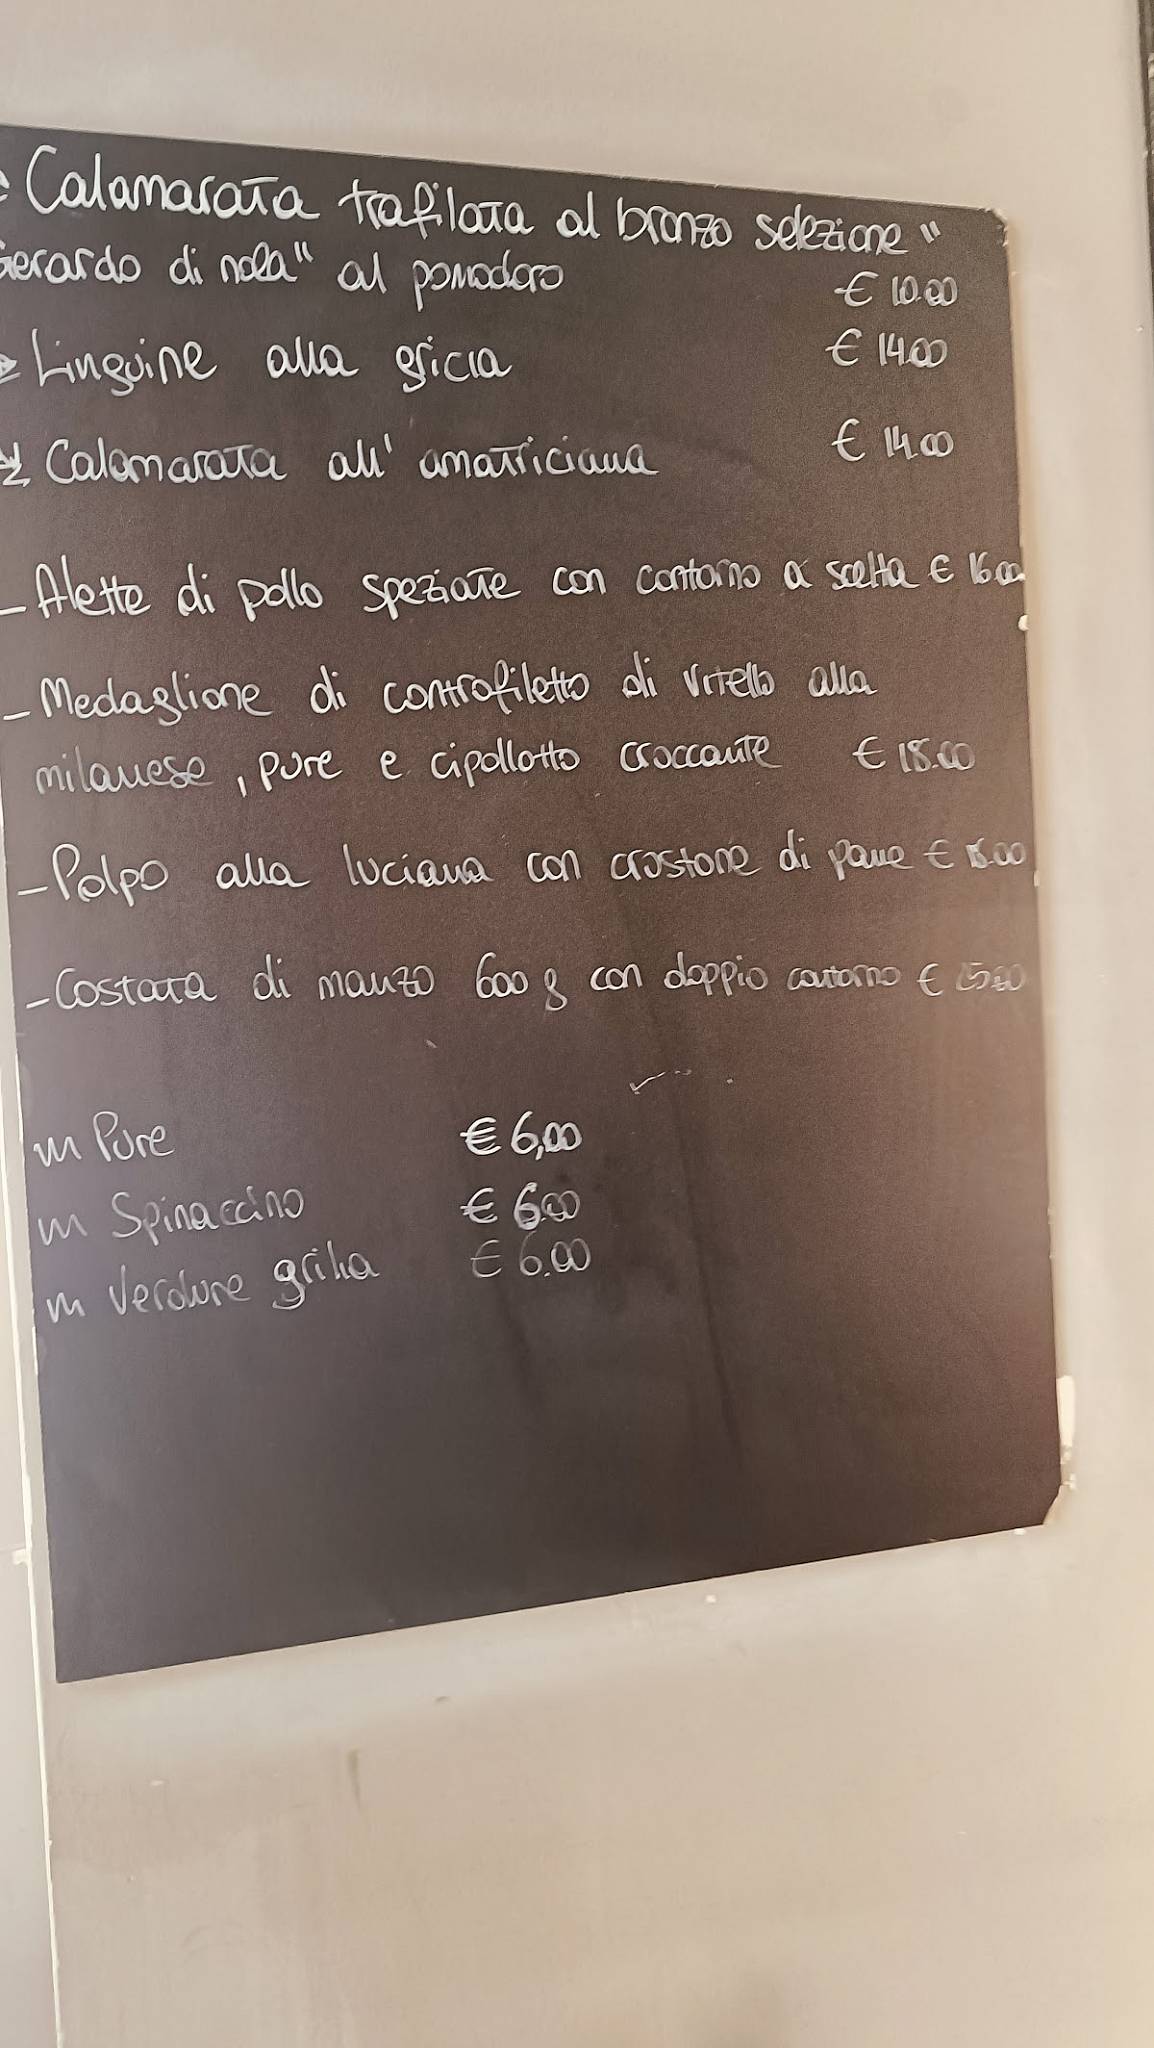 Calamarata trafilata al bronzo selezione "
Gerardo di nola" al pomodoro € 10.00
Linguine alla gricia € 14.00
Calamarata all' amatriciana € 14.00
- Alette di pollo speziate con contorno a scelta € 16.00
- Medaglione di controfiletto di vitello alla
milanese, pure e cipollotto croccante € 18.00
- Polpo alla luciana con crostone di pane €
- Costata di manzo 600 g con doppio contorno €
Pure € 6,00
Spinaccino € 6.00
Verdure grilia € 6.00